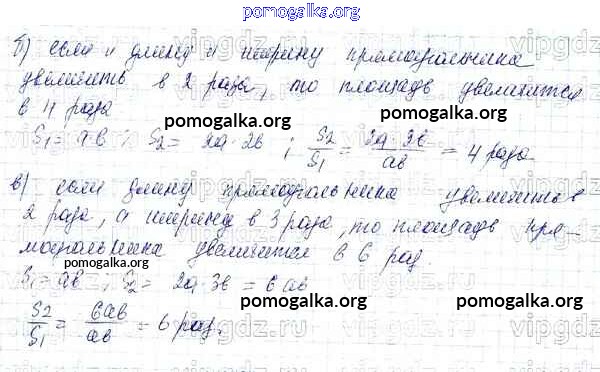 pomogalka.org
б) если и длину и ширину прямоугольника
увеличить в 2 раза, то площадь увеличится
в 4 раза
S₁ = ab ; S₂ = 2a·2b ; S₂/S₁ = 2a·2b/ab = 4 раза
pomogalka.org
в) если длину прямоугольника увеличить в
2 раза, а ширину в 3 раза, то площадь пря-
моугольника увеличится в 6 раз.
pomogalka.org
S₁ = ab ; S₂ = 2a·3b = 6ab
pomogalka.org pomogalka.org
S₂/S₁ = 6ab/ab = 6 раз.
pomogalka.org
vipgdz.ru